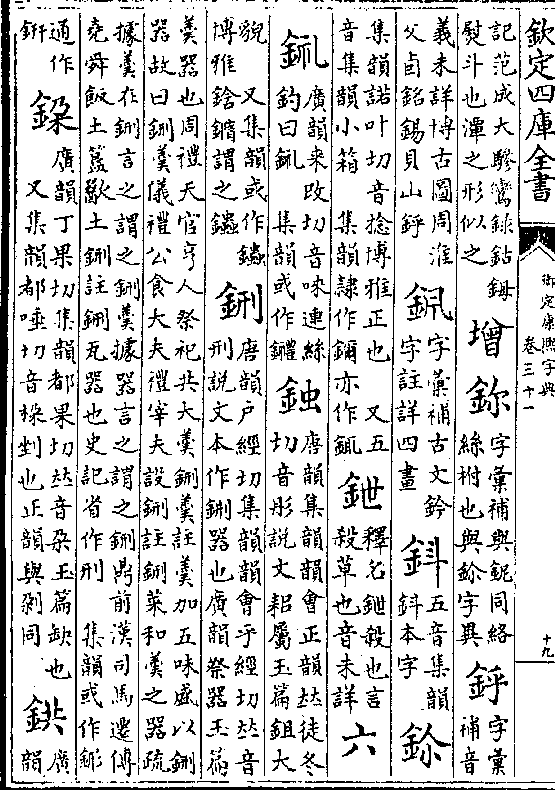 欽定四庫全書
御定康熙字典
卷三十一
十九
記范成大驂鸞錄鈷䥈
熨斗也渾之形似之
增
鉨
字彙補與鈮同絡
絲柎也與鉩字異
字彙
補音
義未詳博古圖周淮
父卣銘錫貝山
字彙補古文鈐
字註詳四畫
鈄
五音集韻
鈄本字
鉩
集韻諾叶切音捻博雅正也 又五
音集韻小箱 集韻隸作鑈亦作
鉪
釋名鉪殺也言
殺草也音未詳
六
廣韻來改切音唻連絲
釣曰 集韻或作
鉵
唐韻集韻韻會正韻𠀤徒冬
切音彤說文耜屬玉篇鉏大
貌 又集韻或作
博雅 謂之
鉶
唐韻戶經切集韻韻會乎經切𠀤音
刑說文本作鉶器也廣韻祭器玉篇
羹器也周禮天官亨人祭祀共大羹鉶羹註羹加五味盛以鉶
器故曰鉶羹儀禮公食大夫禮宰夫設鉶註鉶菜和羹之器疏
據羹在鉶言之謂之鉶羹據器言之謂之鉶鼎前漢司馬遷傳
堯舜飯土簋歠土鉶註鉶瓦器也史記省作刑 集韻或作
通作
鈃
廣韻丁果切集韻都果切𠀤音朶玉篇缺也
又集韻都唾切音桗剉也正韻與剁同
鉷
廣
韻